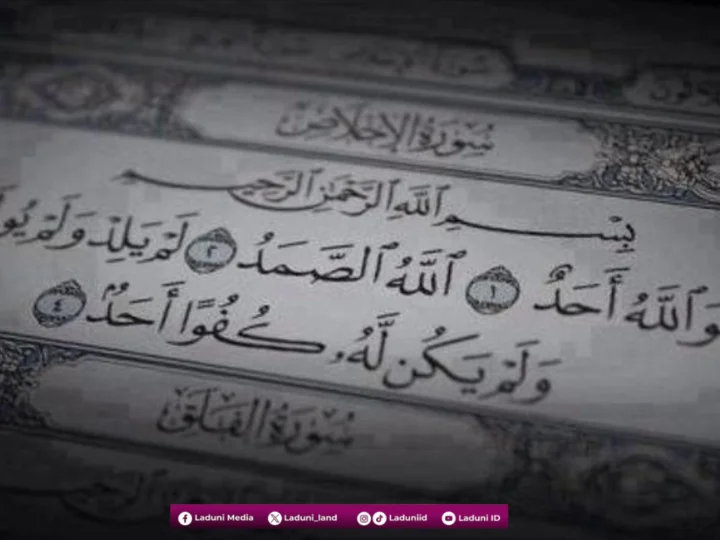 سُورَةُ الإِخْلَاصِ
بِسْمِ ٱللَّهِ ٱلرَّحْمَٰنِ ٱلرَّحِيمِ
ٱللَّهُ أَحَدٌ ١ ٱللَّهُ ٱلصَّمَدُ ٢ لَمْ يَلِدْ وَلَمْ
وَلَمْ يَكُن لَّهُۥ كُفُوًا أَحَدٌۢ ٤
سُورَةُ الفَلَقِ
Laduni Media Laduni_land Laduniid Laduni ID